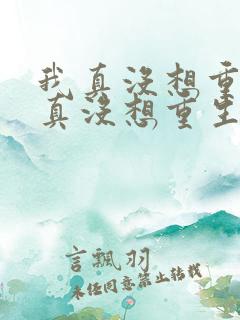 我真没想重
真没想重生
言飘羽
未经同意禁止转载